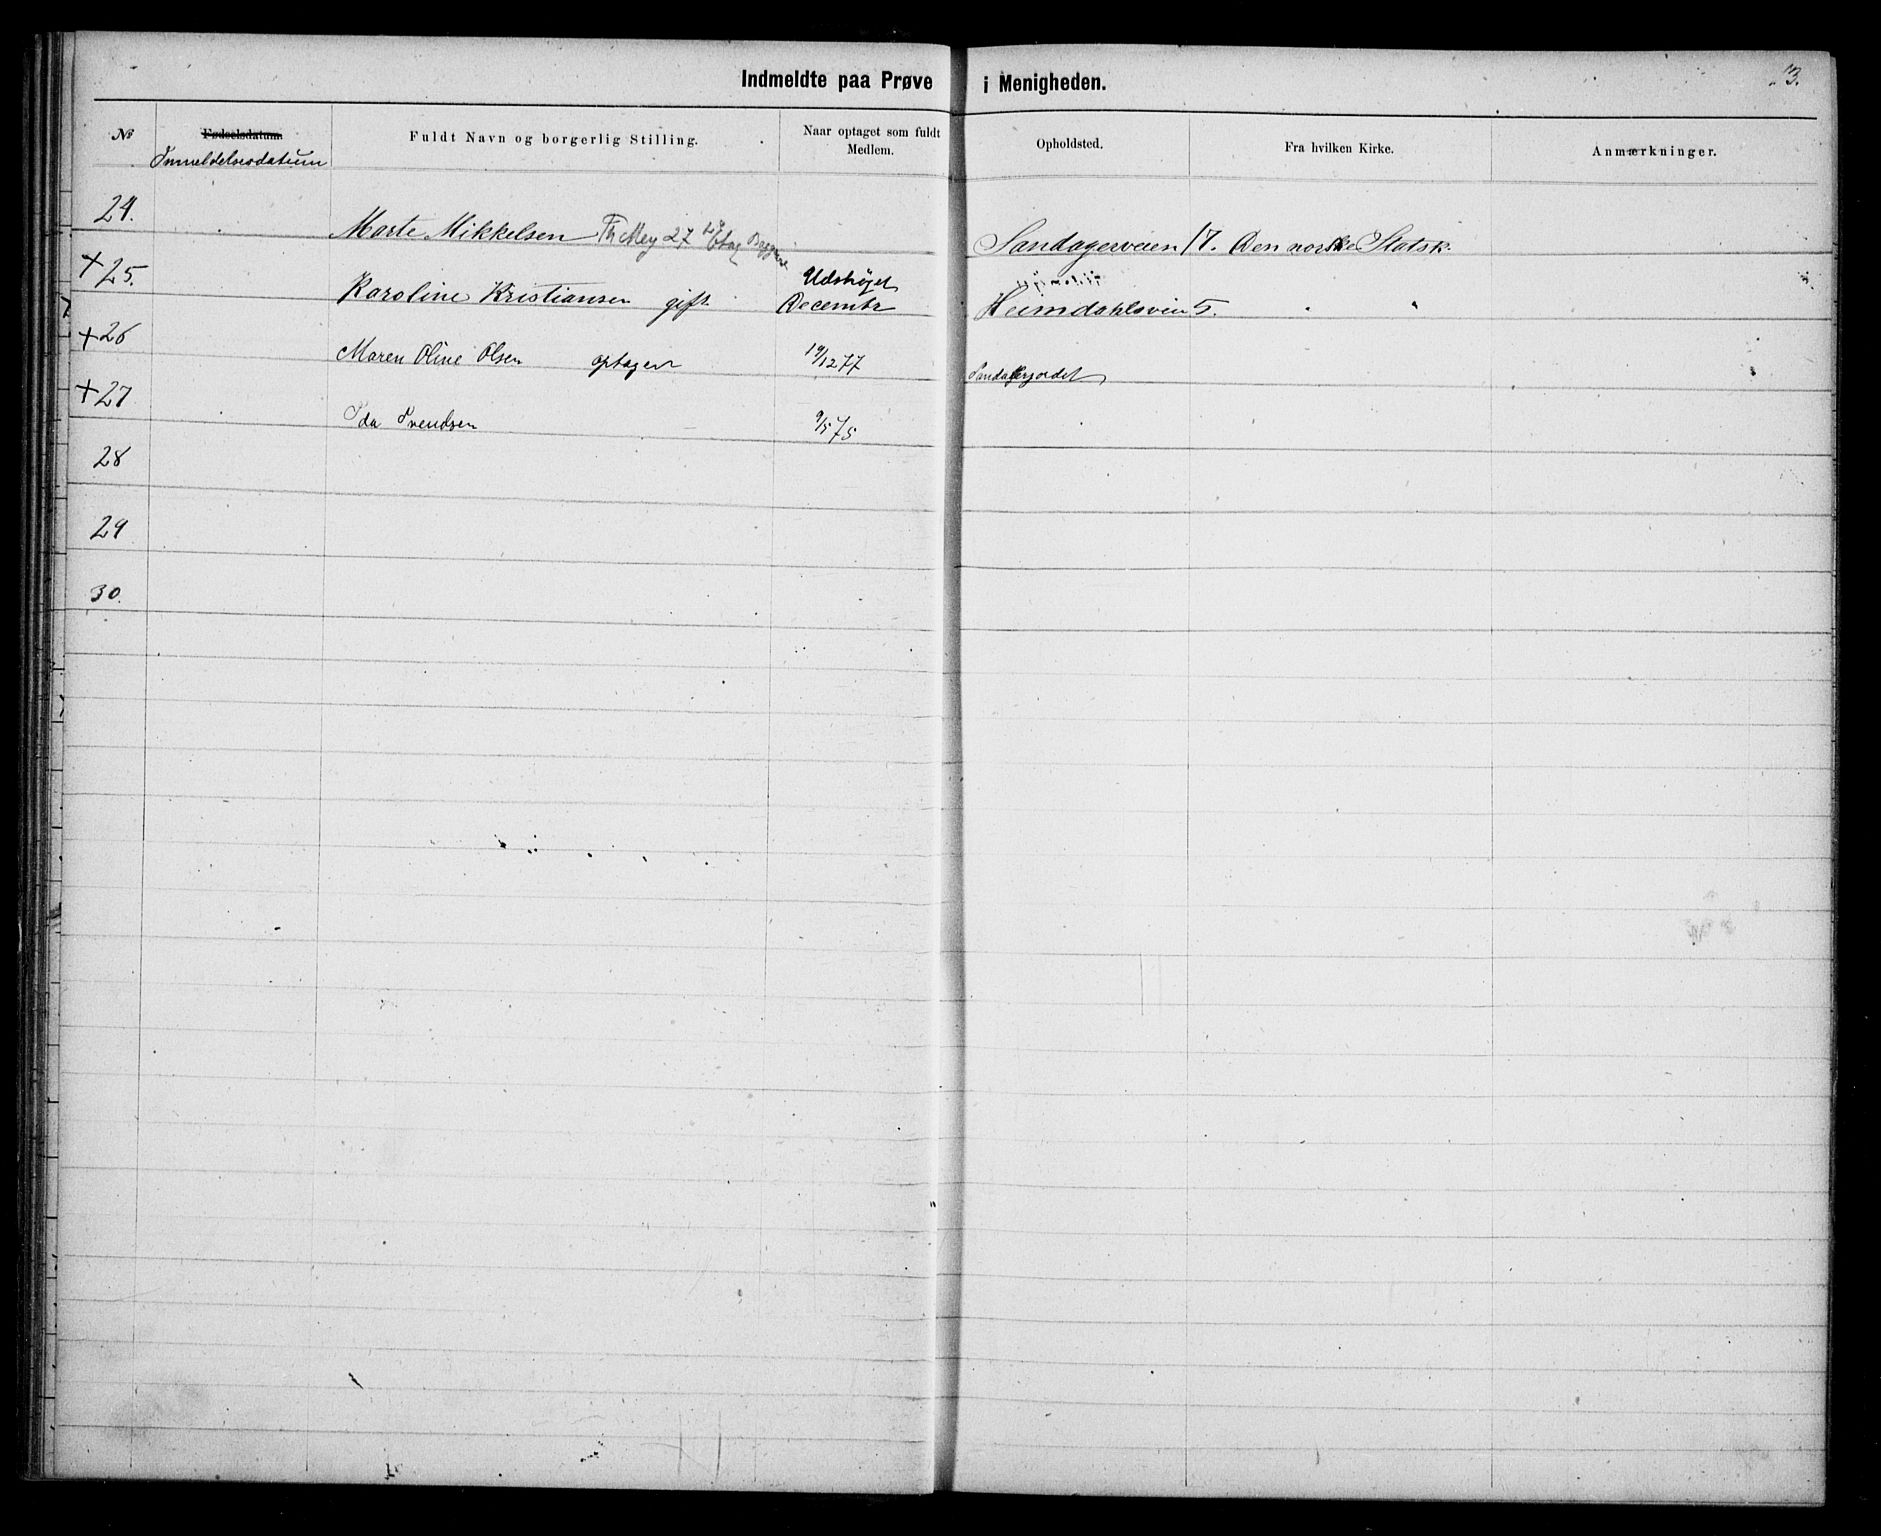 Indmeldte paa Prøve i Menigheden. 3.
№ Fødselsdatum. Fuldt Navn og borgerlig Stilling. Naar optaget som fuldt Opholdsted. Fra hvilken Kirke. Anmærkninger.
Inmeldelsesdatum Medlem.
24. Marte Mikkelsen Th. Mey 27 Etag Sandagerveien 17. Den norske Statsk.
+ 25. Karoline Kristiansen gift Udstrøget Decembr Heimdahlsvein 5. " "
+ 26 Maren Oline Olsen optagen 19/12 77 Sandakerjordet
+ 27 Ida Svendsen 9/5 75
28
29
30.